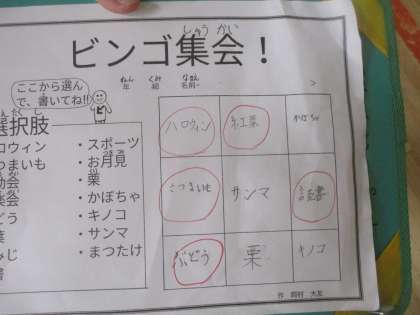 しゅう かい
ビンゴ集会！
ねん くみ なまえ
年 組 名前
ここから選ん
で、書いてね!!
選択肢
ロウィン
つまいも
会
会
どう
みじ
・スポーツ
・お月見
・栗
・かぼちゃ
・キノコ
・サンマ
・まつたけ
ハロウィン 紅葉 かぼちゃ
さつまいも サンマ 読書
ぶどう 栗 キノコ
作